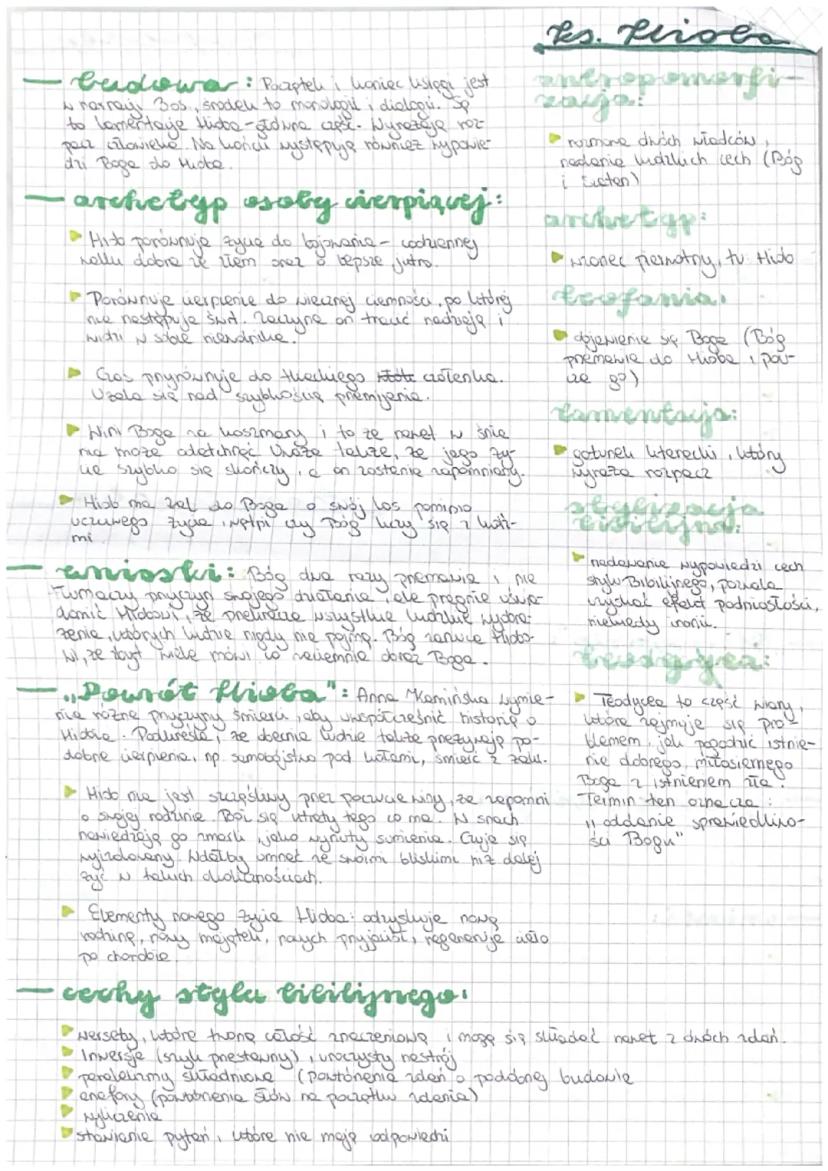 ks. Hioba
— budowa: Początek i koniec księgi jest
w narracji 3os, środek to monologi i dialogi. Są
to lamentacje Hioba - główna część. Wyrażają roz-
pacz człowieka. Na końcu występują również wypowie-
dzi Boga do Hioba.
— archetyp osoby cierpiącej:
Hiob porównuje życie do bojowania - codziennej
walki dobra ze złem oraz o lepsze jutro.
Porównuje cierpienie do wiecznej ciemności, po której
nie następuje świt. Zaczyna on tracić nadzieję i
widzi w sobie niewolnika.
Czas przyrównuje do tkackiego czółenka.
Użala się nad szybkością przemijania.
Wini Boga za koszmary i to że nawet w śnie
nie może odetchnąć. Uważa także, że jego ży-
cie szybko się skończy, a on zostanie zapomniany.
Hiob ma żal do Boga o swój los pomimo
uczciwego życia i wątpi czy Bóg liczy się z ludź-
mi
— wnioski: Bóg dwa razy przemawia i nie
tłumaczy przyczyn swojego działania, ale pragnie uświa-
domić Hiobowi, że przekracza wszystkie ludzkie wyobra-
żenia, których ludzie nigdy nie pojmą. Bóg zarzuca Hiobo-
wi, że zbyt wiele mówi co zaciemnia obraz Boga.
— „Powrót Hioba": Anna Kamińska wymie-
nia różne przyczyny śmierci, aby uwspółcześnić historię o
Hiobie. Podkreśla, że obecnie ludzie także przeżywają po-
dobne cierpienia, np. samobójstwo pod kołami, śmierć z żalu.
Hiob nie jest szczęśliwy przez poczucie winy, że zapomni
o swojej rodzinie. Boi się utraty tego co ma. W snach
nawiedzają go zmarli, jako wyrzuty sumienia. Czuje się
wyizolowany. Wolałby umrzeć ze swoimi bliskimi niż dalej
żyć w takich okolicznościach.
Elementy nowego życia Hioba: odzyskuje nową
rodzinę, nowy majątek, nowych przyjaciół, regeneruje ciało
po chorobie.
— cechy stylu biblijnego:
wersety, które tworzą całość znaczeniową i mogą się składać nawet z dwóch zdań.
Inwersje (szyk przestawny), uroczysty nastrój
paralelizmy składniowe (powtórzenia zdań o podobnej budowie
anafory (powtórzenia słów na początku zdania)
wyliczenia
stawianie pytań, które nie mają odpowiedzi
antropomorfi-
zacja:
rozmowa dwóch władców,
nadanie ludzkich cech (Bóg
i Szatan)
archetyp:
wzorzec pierwotny, tu Hiob
teofania:
objawienie się Boga (Bóg
przemawia do Hioba i pou-
cza go)
lamentacja:
gatunek literacki, który
wyraża rozpacz
stylizacja
biblijna:
nadawanie wypowiedzi cech
stylu Bibilijnego, pozwala
uzyskać efekt podniosłości,
niekiedy ironii.
teodycea:
Teodycea to część wiary,
która zajmuje się pro-
blemem, jak pogodzić istnie-
nie dobrego, miłosiernego
Boga z istnieniem zła.
Termin ten oznacza:
„oddanie sprawiedliwo-
ści Bogu"